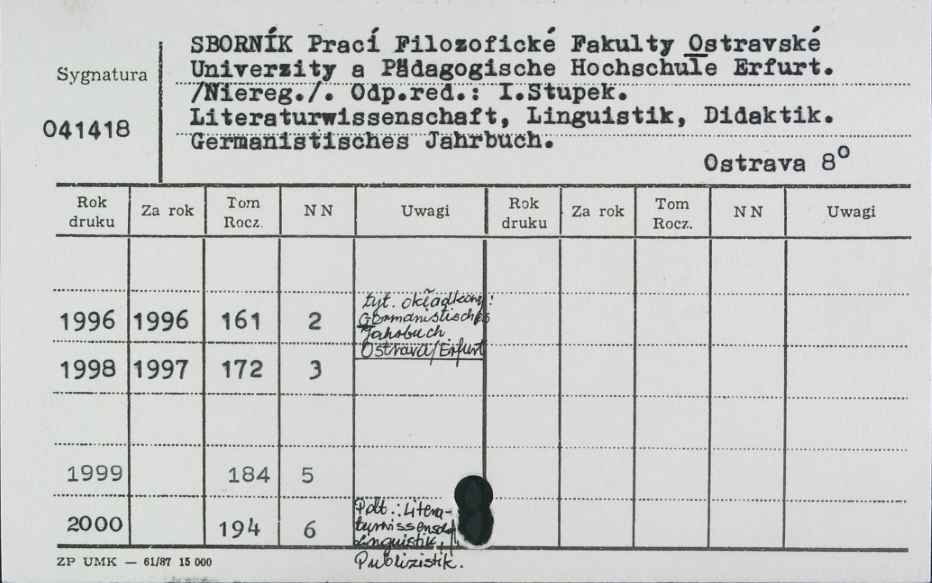 SBORNÍK Prací Filozofické Fakulty Ostravské
Univerzity a Pädagogische Hochschule Erfurt.
/Niereg./. Odp.red.: I.Stupek.
Literaturwissenschaft, Linguistik, Didaktik.
Germanistisches Jahrbuch.
Ostrava 8°
Sygnatura
041418
Rok druku Za rok Tom Rocz. NN Uwagi Rok druku Za rok Tom Rocz. NN Uwagi
1996 1996 161 2 tyt. okładkowy:
Germanistisches
Jahrbuch
Ostrava/Erfurt
1998 1997 172 3
1999 184 5
2000 194 6 Pdt.: Litera-
turwissensch
Linguistik,
Publizistik.
ZP UMK — 61/87 15 000